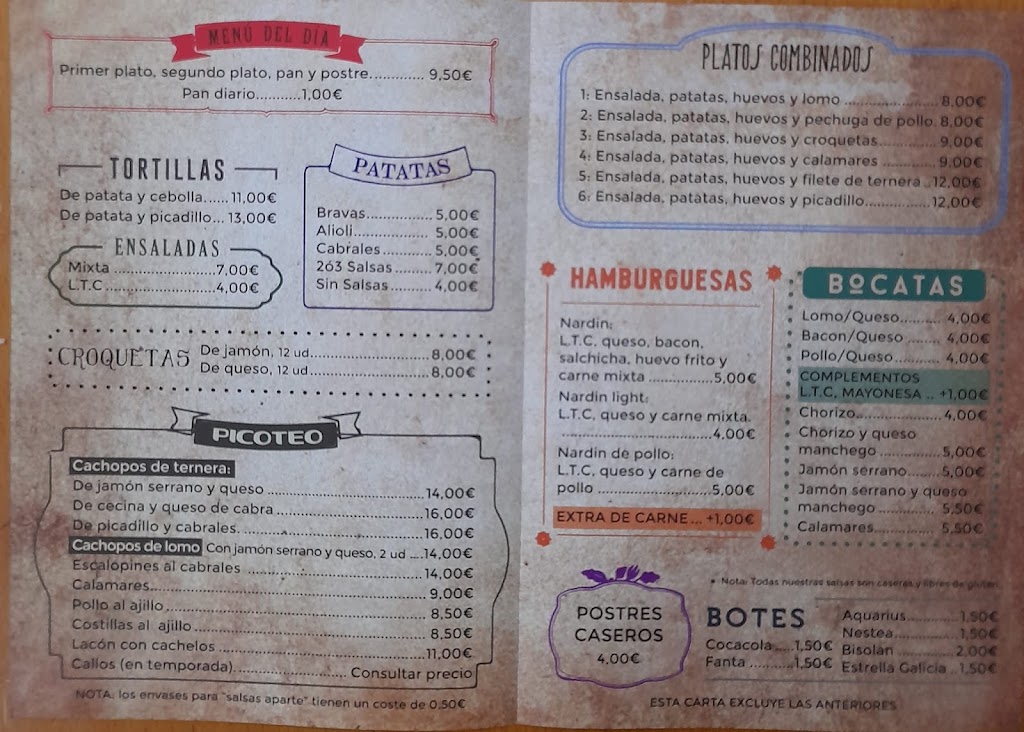 MENÚ DEL DÍA
Primer plato, segundo plato, pan y postre............. 9,50€
Pan diario..........1,00€
TORTILLAS
De patata y cebolla...... 11,00€
De patata y picadillo... 13,00€
PATATAS
Bravas............... 5,00€
Alioli.................. 5,00€
Cabrales............ 5,00€
2ó3 Salsas......... 7,00€
Sin Salsas.......... 4,00€
ENSALADAS
Mixta ....................7,00€
L.T.C ......................4,00€
CROQUETAS
De jamón, 12 ud...........................8,00€
De queso, 12 ud...........................8,00€
PICOTEO
Cachopos de ternera:
De jamón serrano y queso ................................14,00€
De cecina y queso de cabra ..............................16,00€
De picadillo y cabrales......................................16,00€
Cachopos de lomo Con jamón serrano y queso, 2 ud ....14,00€
Escalopines al cabrales .....................................14,00€
Calamares.......................................................9,00€
Pollo al ajillo.....................................................8,50€
Costillas al ajillo ...............................................8,50€
Lacón con cachelos .........................................11,00€
Callos (en temporada)...................... Consultar precio
NOTA: los envases para "salsas aparte" tienen un coste de 0,50€
PLATOS COMBINADOS
1: Ensalada, patatas, huevos y lomo .................. 8,00€
2: Ensalada, patatas, huevos y pechuga de pollo. 8,00€
3: Ensalada, patatas, huevos y croquetas............ 9,00€
4: Ensalada, patatas, huevos y calamares ........... 9,00€
5: Ensalada, patatas, huevos y filete de ternera .. 12,00€
6: Ensalada, patatas, huevos y picadillo............... 12,00€
HAMBURGUESAS
Nardin:
L.T.C, queso, bacon,
salchicha, huevo frito y
carne mixta ...............5,00€
Nardin light:
L.T.C, queso y carne mixta.
...................................4,00€
Nardin de pollo:
L.T.C, queso y carne de
pollo ..........................5,00€
EXTRA DE CARNE... +1,00€
BOCATAS
Lomo/Queso.......... 4,00€
Bacon/Queso ........ 4,00€
Pollo/Queso........... 4,00€
COMPLEMENTOS
L.T.C, MAYONESA .. +1,00€
Chorizo.................... 4,00€
Chorizo y queso
manchego .................. 5,00€
Jamón serrano........ 5,00€
Jamón serrano y queso
manchego .................. 5,50€
Calamares................ 5,50€
• Nota: Todas nuestras salsas son caseras y libres de gluten
POSTRES
CASEROS
4,00€
BOTES
Cocacola .... 1,50€
Fanta .......... 1,50€
Aquarius............ 1,50€
Nestea............... 1,50€
Bisolan .............. 2,00€
Estrella Galicia .. 1,50€
ESTA CARTA EXCLUYE LAS ANTERIORES